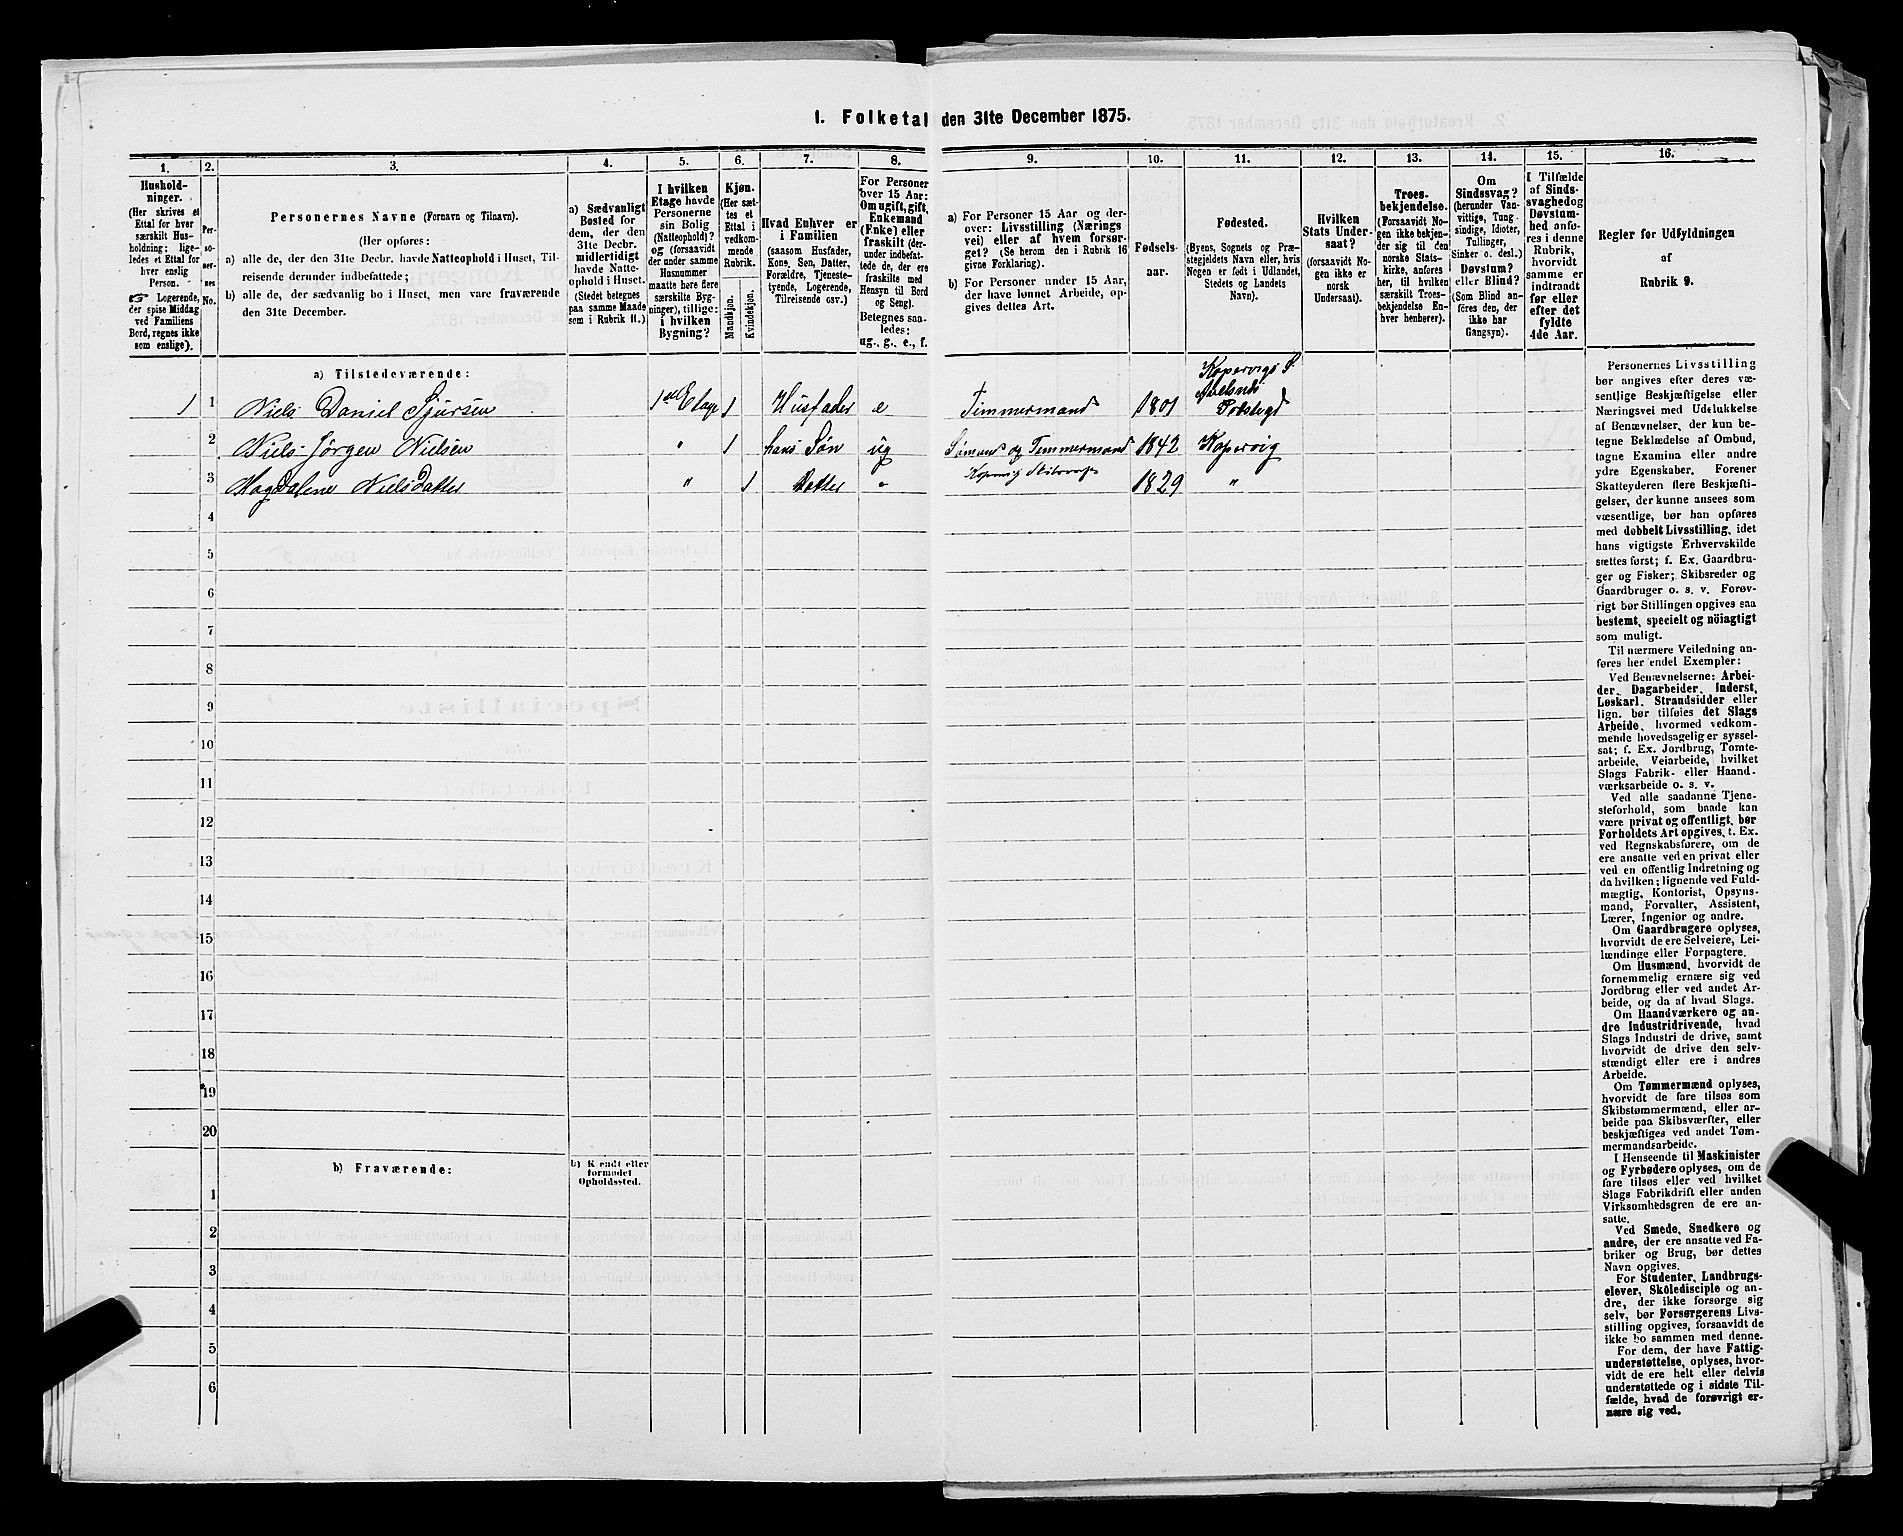 1. Folketal den 31te December 1875.
1.
2.
3.
4.
5.
6.
7.
8.
9.
10.
11.
12.
13.
14.
15.
16.
Husholdninger.
(Her skrives et
Ettal for hver
særskilt Husholdning;
ligeledes et Ettal for
hver enslig
Person.
☞ Logerende,
der spise Middag
ved Familiens
Bord, regnes ikke
som enslige).
Personernes
No.
Personernes Navne (Fornavn og Tilnavn).
(Her opføres:
a) alle de, der den 31te Decbr. havde Natteophold i Huset, Tilreisende derunder indbefattede;
b) alle de, der sædvanlig bo i Huset, men vare fraværende
den 31te December.
a) Sædvanligt
Bosted for
dem, der den
31te Decbr.
midlertidigt
havde Natteophold i Huset.
(Stedet betegnes
paa samme Maade
som i Rubrik 11.)
I hvilken
Etage havde
Personerne
sin Bolig
(Natteophold)?
og (forsaavidt
der under samme
Husnummer
maatte høre flere
særskilte Bygninger), tillige:
i hvilken
Bygning?
Kjøn.
(Her sættes et
Ettal i
vedkommende
Rubrik.
Mandkjøn.
Kvindekjøn.
Hvad Enhver er
i Familien
(saasom Husfader,
Kone, Søn, Datter,
Forældre, Tjenestetyende, Logerende,
Tilreisende osv.)
For Personer
over 15 Aar:
Om ugift, gift,
Enkemand
(Enke) eller
fraskilt (derunder indbefattede de, der ere
fraskilte med
Hensyn til Bord
og Seng).
Betegnes saaledes:
ug., g., e., f.
a) For Personer 15 Aar og derover: Livsstilling (Næringsvei) eller af hvem forsørget? (Se herom den i Rubrik 16
givne Forklaring).
b) For Personer under 15 Aar,
der have lønnet Arbeide, opgives dettes Art.
Fødselsaar.
Fødested.
(Byens, Sognets og Præstegjeldets Navn eller, hvis
Nogen er født i Udlandet,
Stedets og Landets
Navn).
Hvilken
Stats Undersaat?
(forsaavidt Nogen ikke er
norsk
Undersaat).
Troesbekjendelse.
(Forsaavidt Nogen ikke bekjender sig til den
norske Statskirke, anføres
her, til hvilken
særskilt Troesbekjendelse Enhver henhører).
Om
Sindssvag?
(herunder Vanvittige, Tungsindige, Idioter,
Tullinger,
Sinker o. desl.)
Døvstum?
eller Blind?
(Som Blind anføres den, der
ikke har
Gangsyn).
I Tilfælde
af Sindssvaghed og
Døvstumhed anføres i denne
Rubrik,
hvorvidt
samme er
indtraadt
før eller
efter det
fyldte
4de Aar.
Regler for Udfyldningen
af
Rubrik 9.
a) Tilstedeværende:
1 1 Niels Daniel Sjursen 1ste Etage 1 Husfader e Timmermand 1801 Kopervigs S.
Prstegd
2 Niels Jørgen Nielsen " 1 hans Søn ug Sømand og Timmermand 1842 Kopervig
3 Magdalene Nielsdatter " 1 Datter " 1829 "
4
5
6
7
8
9
10
11
12
13
14
15
16
17
18
19
20
b) Fraværende:
b) Kjendt eller
formodet
Opholdssted.
1
2
3
4
5
6
Personernes Livsstilling
bør angives efter deres væsentlige Beskjæftigelse eller
Næringsvei med Udelukkelse
af Benævnelser, der kun betegne Beklædelse af Ombud,
tagne Examina eller andre
ydre Egenskaber. Forener
Skatteyderen flere Beskjæftigelser, der kunne ansees som
væsentlige, bør han opføres
med dobbelt Livsstilling, idet
hans vigtigste Erhvervskilde
sættes først; f. Ex. Gaardbruger og Fisker; Skibsreder og
Gaardbruger o. s. v. Forøvrigt bør Stillingen opgives saa
bestemt, specielt og nöiagtigt
som muligt.
Til nærmere Veiledning anføres her endel Exempler:
Ved Benævnelserne: Arbeider, Dagarbeider, Inderst,
Løskarl, Strandsidder eller
lign. bør tilføies det Slags
Arbeide, hvormed vedkommende hovedsagelig er sysselsat; f. Ex. Jordbrug, Tomtearbeide, Veiarbeide, hvilket
Slags Fabrik- eller Haandværksarbeide o. s. v.
Ved alle saadanne Tjenesteforhold, som baade kan
være privat og offentligt, bør
Forholdets Art opgives, t. Ex.
ved Regnskabsførere, om de
ere ansatte ved en privat eller
ved en offentlig Indretning og
da hvilken; lignende ved Fuldmægtig, Kontorist, Opsynsmand, Forvalter, Assistent,
Lærer, Ingeniør og andre.
Om Gaardbrugere oplyses,
hvorvidt de ere Selveiere, Leilændinge eller Forpagtere.
Om Husmænd, hvorvidt de
fornemmelig ernære sig ved
Jordbrug eller ved andet Arbeide, og da af hvad Slags.
Om Haandværkere og andre Industridrivende, hvad
Slags Industri de drive, samt
hvorvidt de drive den selvstændigt eller ere i andres
Arbeide.
Om Tømmermænd oplyses,
hvorvidt de fare tilsøs som
Skibstømmermænd, eller arbeide paa Skibsværfter, eller
beskjæftiges ved andet Tømmermandsarbeide.
I Henseende til Maskinister
og Fyrbødere oplyses, om de
fare tilsøs eller ved hvilket
Slags Fabrikdrift eller anden
Virksomhedsgren de ere ansatte.
Ved Smede, Snedkere og
andre, der ere ansatte ved Fabriker og Brug, bør dettes
Navn opgives.
For Studenter, Landbrugselever, Skoledisciple og andre, der ikke forsørge sig
selv, bør Forsørgerens Livsstilling opgives, forsaavidt de
ikke bo sammen med denne.
For dem, der have Fattigunderstøttelse, oplyses, hvorvidt de ere helt eller delvis
understøttede og i sidste Tilfælde, hvad de forøvrigt ernære sig ved.